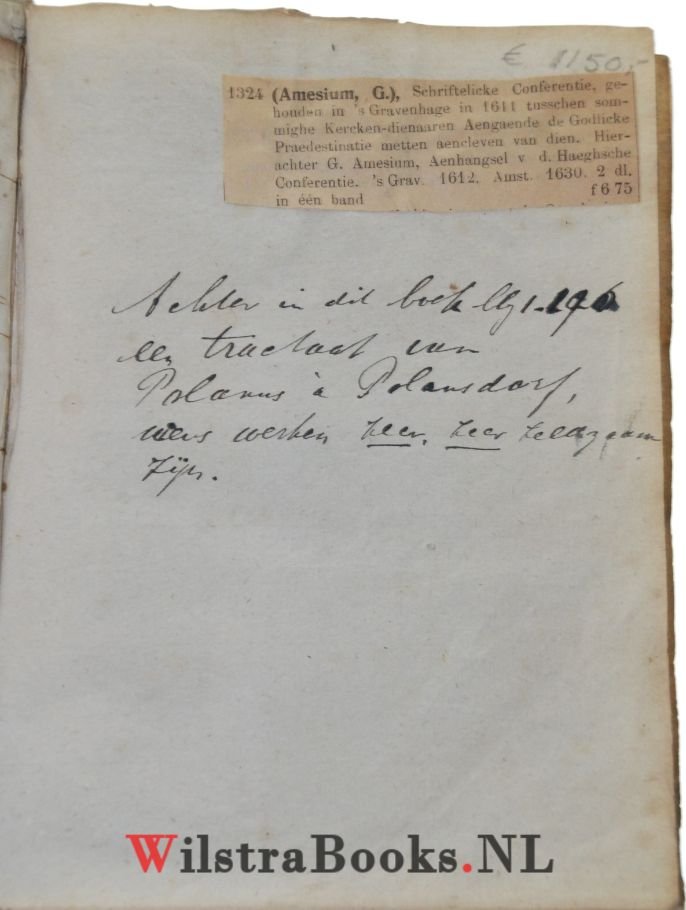 € 1150,-
1324 (Amesium, G.), Schriftelicke Conferentie, ge-
houden in 's Gravenhage in 1611 tusschen som-
mighe Kercken-dienaaren Aengaende de Godlicke
Praedestinatie metten aencleven van dien. Hier-
achter G. Amesium, Aenhangsel v d. Haeghsche
Conferentie. 's Grav. 1612. Amst. 1630. 2 dl.
in één band f 6 75
Achter in dit boek blz 1-196
een tractaat van
Polanus à Polansdorf,
wiens werken zeer, zeer zeldzaam
zijn.
WilstraBooks.NL